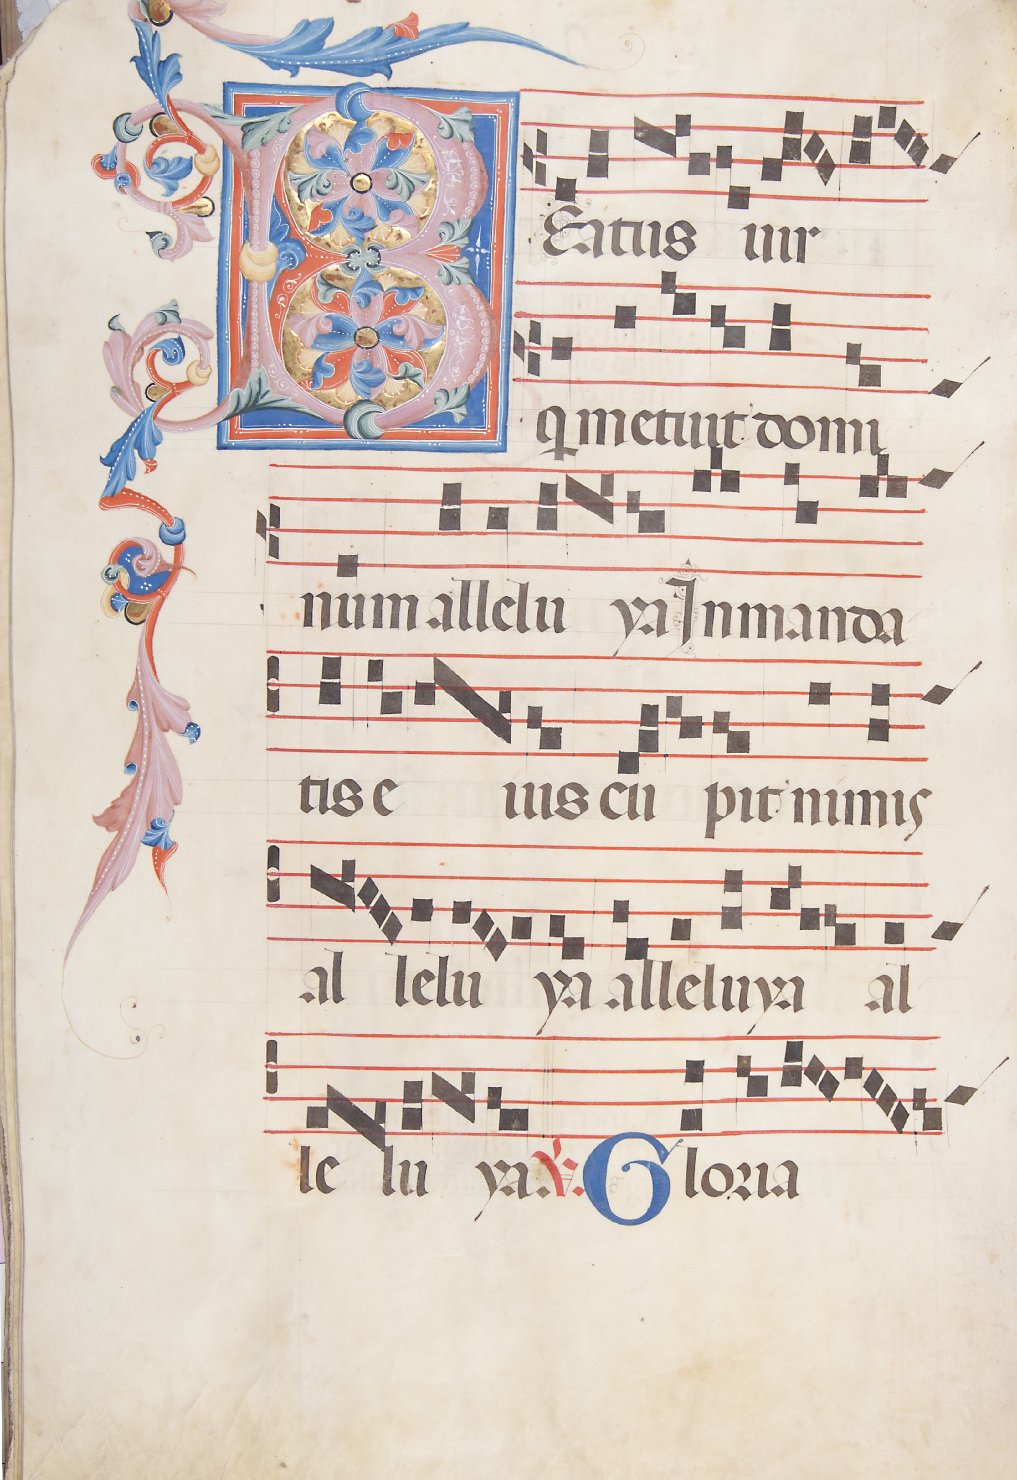 BEatus uir
q metuit domi
num allelu ya Jn manda
tis e ius cu pit nimis
al lelu ya alleluya al
le lu ya. V. Gloria